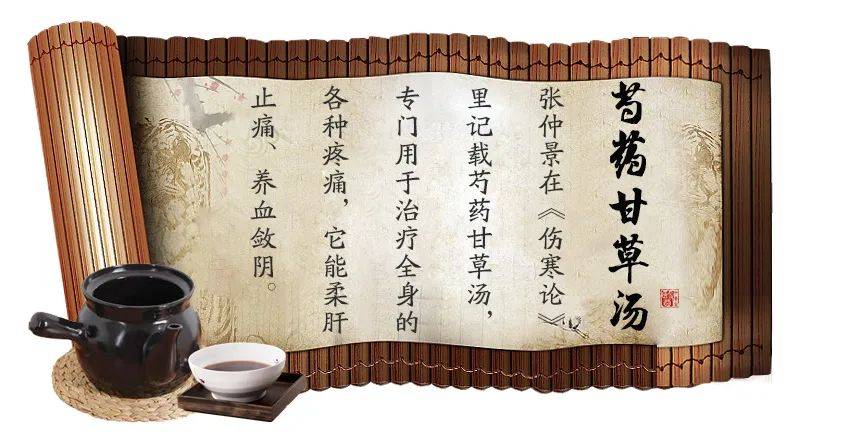 芍药甘草汤
张仲景在《伤寒论》
里记载芍药甘草汤，
专门用于治疗全身的
各种疼痛，它能柔肝
止痛、养血敛阴。